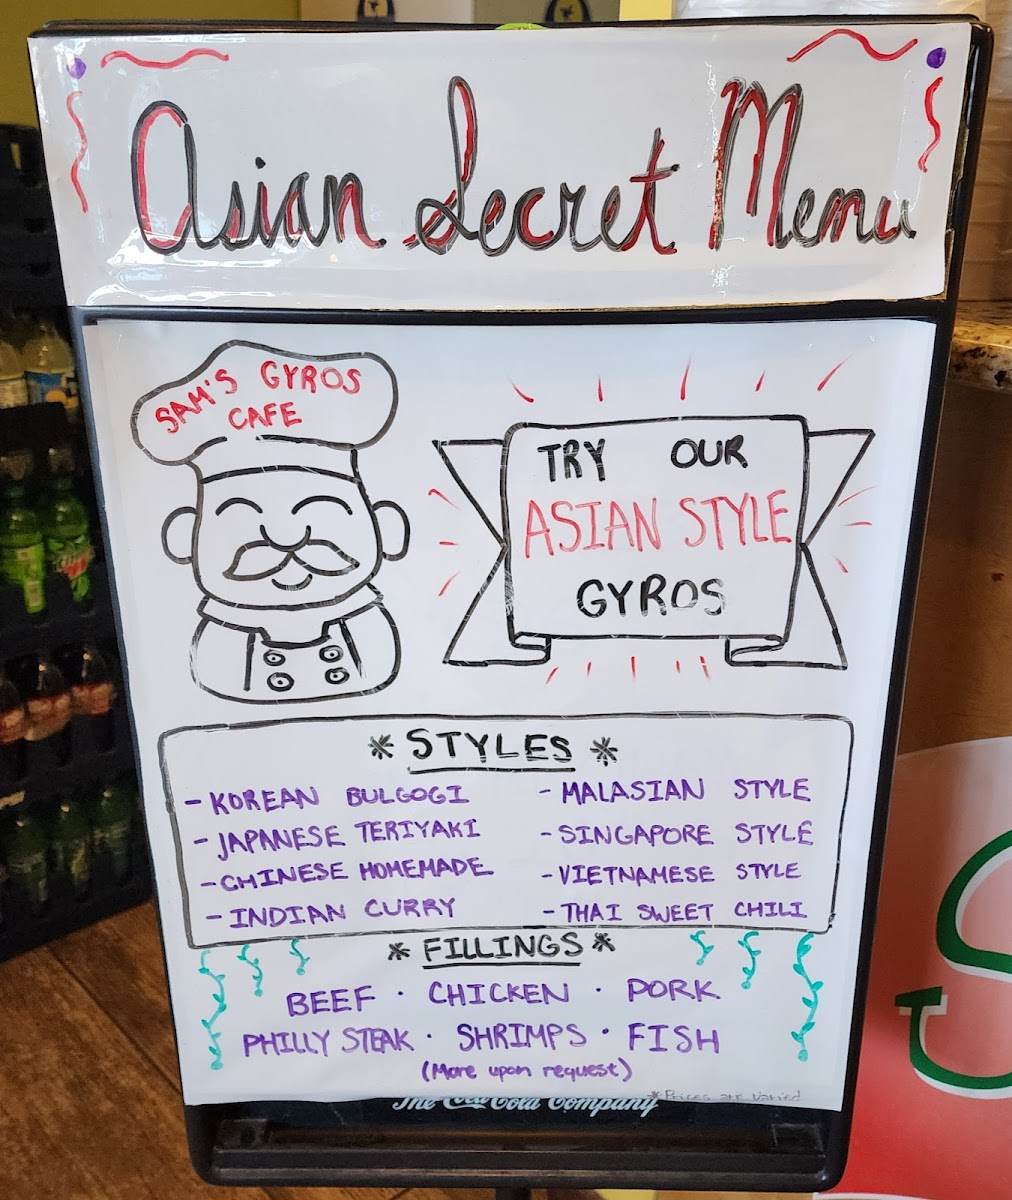 Asian Secret Menu
SAM'S GYROS
CAFE
TRY OUR
ASIAN STYLE
GYROS
* STYLES *
- KOREAN BULGOGI
- JAPANESE TERIYAKI
- CHINESE HOMEMADE
- INDIAN CURRY
- MALASIAN STYLE
- SINGAPORE STYLE
- VIETNAMESE STYLE
- THAI SWEET CHILI
* FILLINGS *
BEEF · CHICKEN · PORK
PHILLY STEAK · SHRIMPS · FISH
(More upon request)
*Prices are varied
The Coca-Cola Company